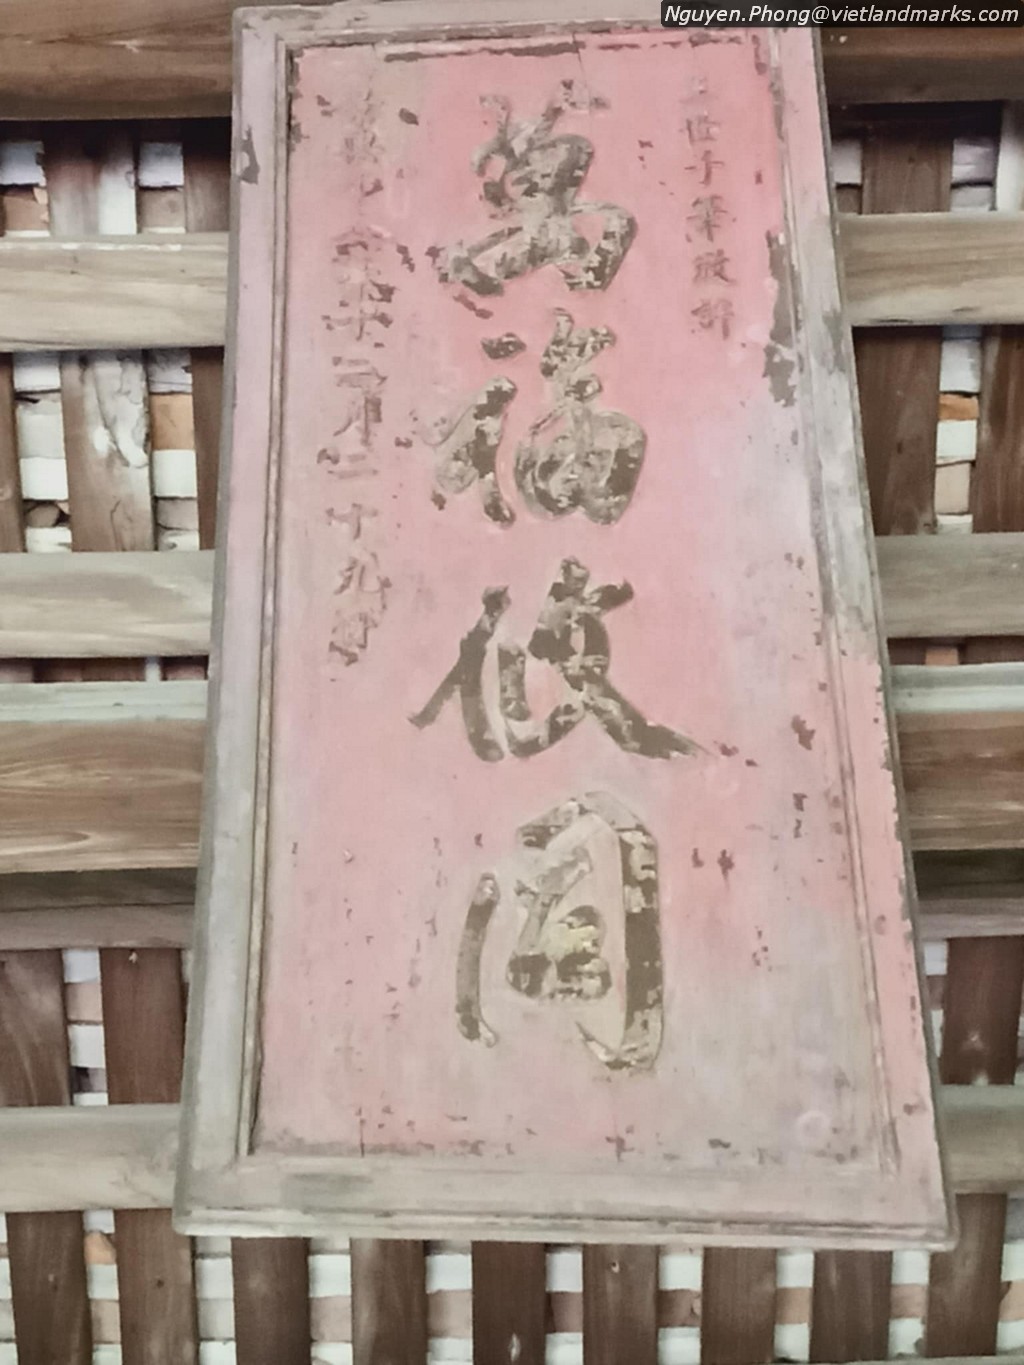 Nguyen.Phong@vietlandmarks.com
世子筆敬辭
萬福攸同
年十二月二十九日